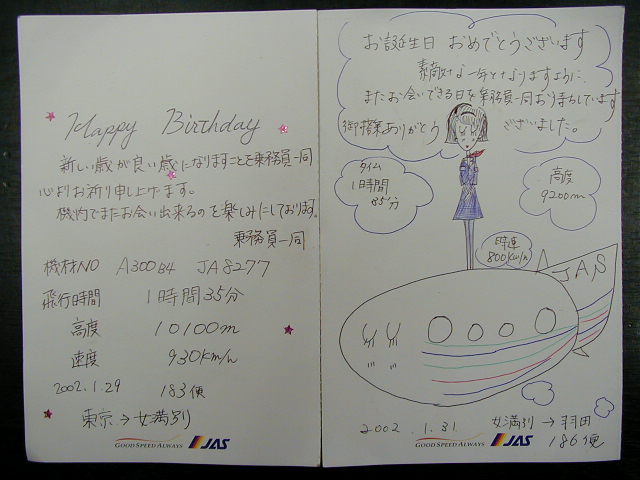 Happy Birthday
新しい歳が良い歳になりますことを乗務員一同
心よりお祈り申し上げます。
機内でまたお会い出来るのを楽しみにしております。
乗務員一同
機材NO A300B4 JA8277
飛行時間 1時間35分
高度 10100m
速度 930km/h
2002.1.29 183便
東京→女満別
GOOD SPEED ALWAYS JAS
お誕生日 おめでとうございます
素敵な一年となりますように、
またお会いできる日を乗務員一同お待ちしています
御搭乗ありがとうございました。
タイム
1時間
35分
高度
9200m
時速
800km/h
AJAS
2002.1.31 女満別→羽田
186便
GOOD SPEED ALWAYS JAS